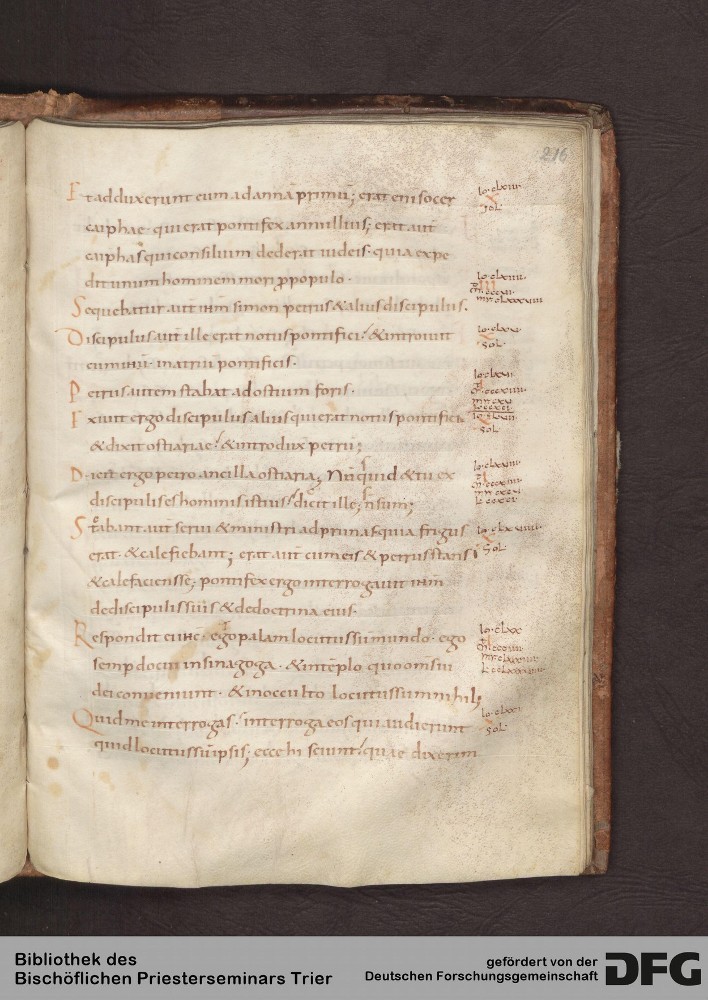 216
Et adduxerunt eum ad annā primū; erat enī socer
caiphae qui erat pontifex anni illius; erat aut̄
caiphas qui consilium dederat iudeis quia expe
dit unum hominem mori ꝓ populo.
Sequebatur aut̄ ihm̄ simon petrus & alius discipulus.
Discipulus aut̄ ille erat notus pontifici & introiuit
cum ihū in atriū pontificis.
Petrus autem stabat ad ostium foris.
Exiuit ergo discipulus alius qui erat notus pontifici
& dixit ostiariae & introdux̄ petrū;
Dicit ergo petro ancilla ostiaria; Nūquid & tu ex
discipulis es hominis istius dicit ille; n̄ sum;
Stabant aut̄ serui & ministri ad prunas quia frigus
erat & calefiebant; erat aut̄ cum eis & petrus stans
& calefaciens se; pontifex ergo interrogauit ihm̄
de discipulis suis & de doctrina eius.
Respondit ei ihc̄ ego palam locutus sū mundo. ego
semp docui in sinagoga. & in tēplo quo om̄s iu
dei conueniunt. & in occulto locutus sum nihil;
Quid me interrogas interroga eos qui audierunt
quid locutus sū ipsis; ecce hi sciunt quae dixerim
Bibliothek des
Bischöflichen Priesterseminars Trier
gefördert von der
Deutschen Forschungsgemeinschaft
DFG